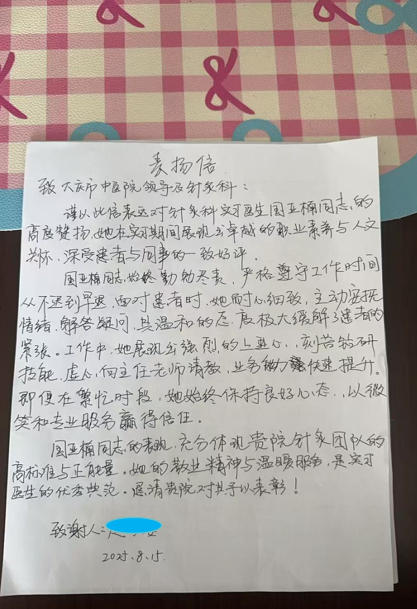 表扬信
致大庆市中医院领导及针灸科：
谨以此信表达对针灸科实习医生国亚楠同志的
高度赞扬，她在实习期间展现出卓越的职业素养与人文
关怀，深受患者与同事的一致好评。
国亚楠同志始终勤勉尽责，严格遵守工作时间
从不迟到早退，面对患者时，她耐心细致，主动安抚
情绪，解答疑问，其温和的态度极大缓解了患者的
紧张。工作中，她展现出强烈的上进心，刻苦钻研
技能，虚心向主任老师请教，业务能力快速提升。
即便在繁忙时段，她始终保持良好心态，以微
笑和专业服务赢得信任。
国亚楠同志的表现，充分体现贵院针灸团队的
高标准与正能量。她的敬业精神与温暖服务，是实习
医生的优秀典范。恳请贵院对其予以表彰！
致谢人：
2025.8.15.